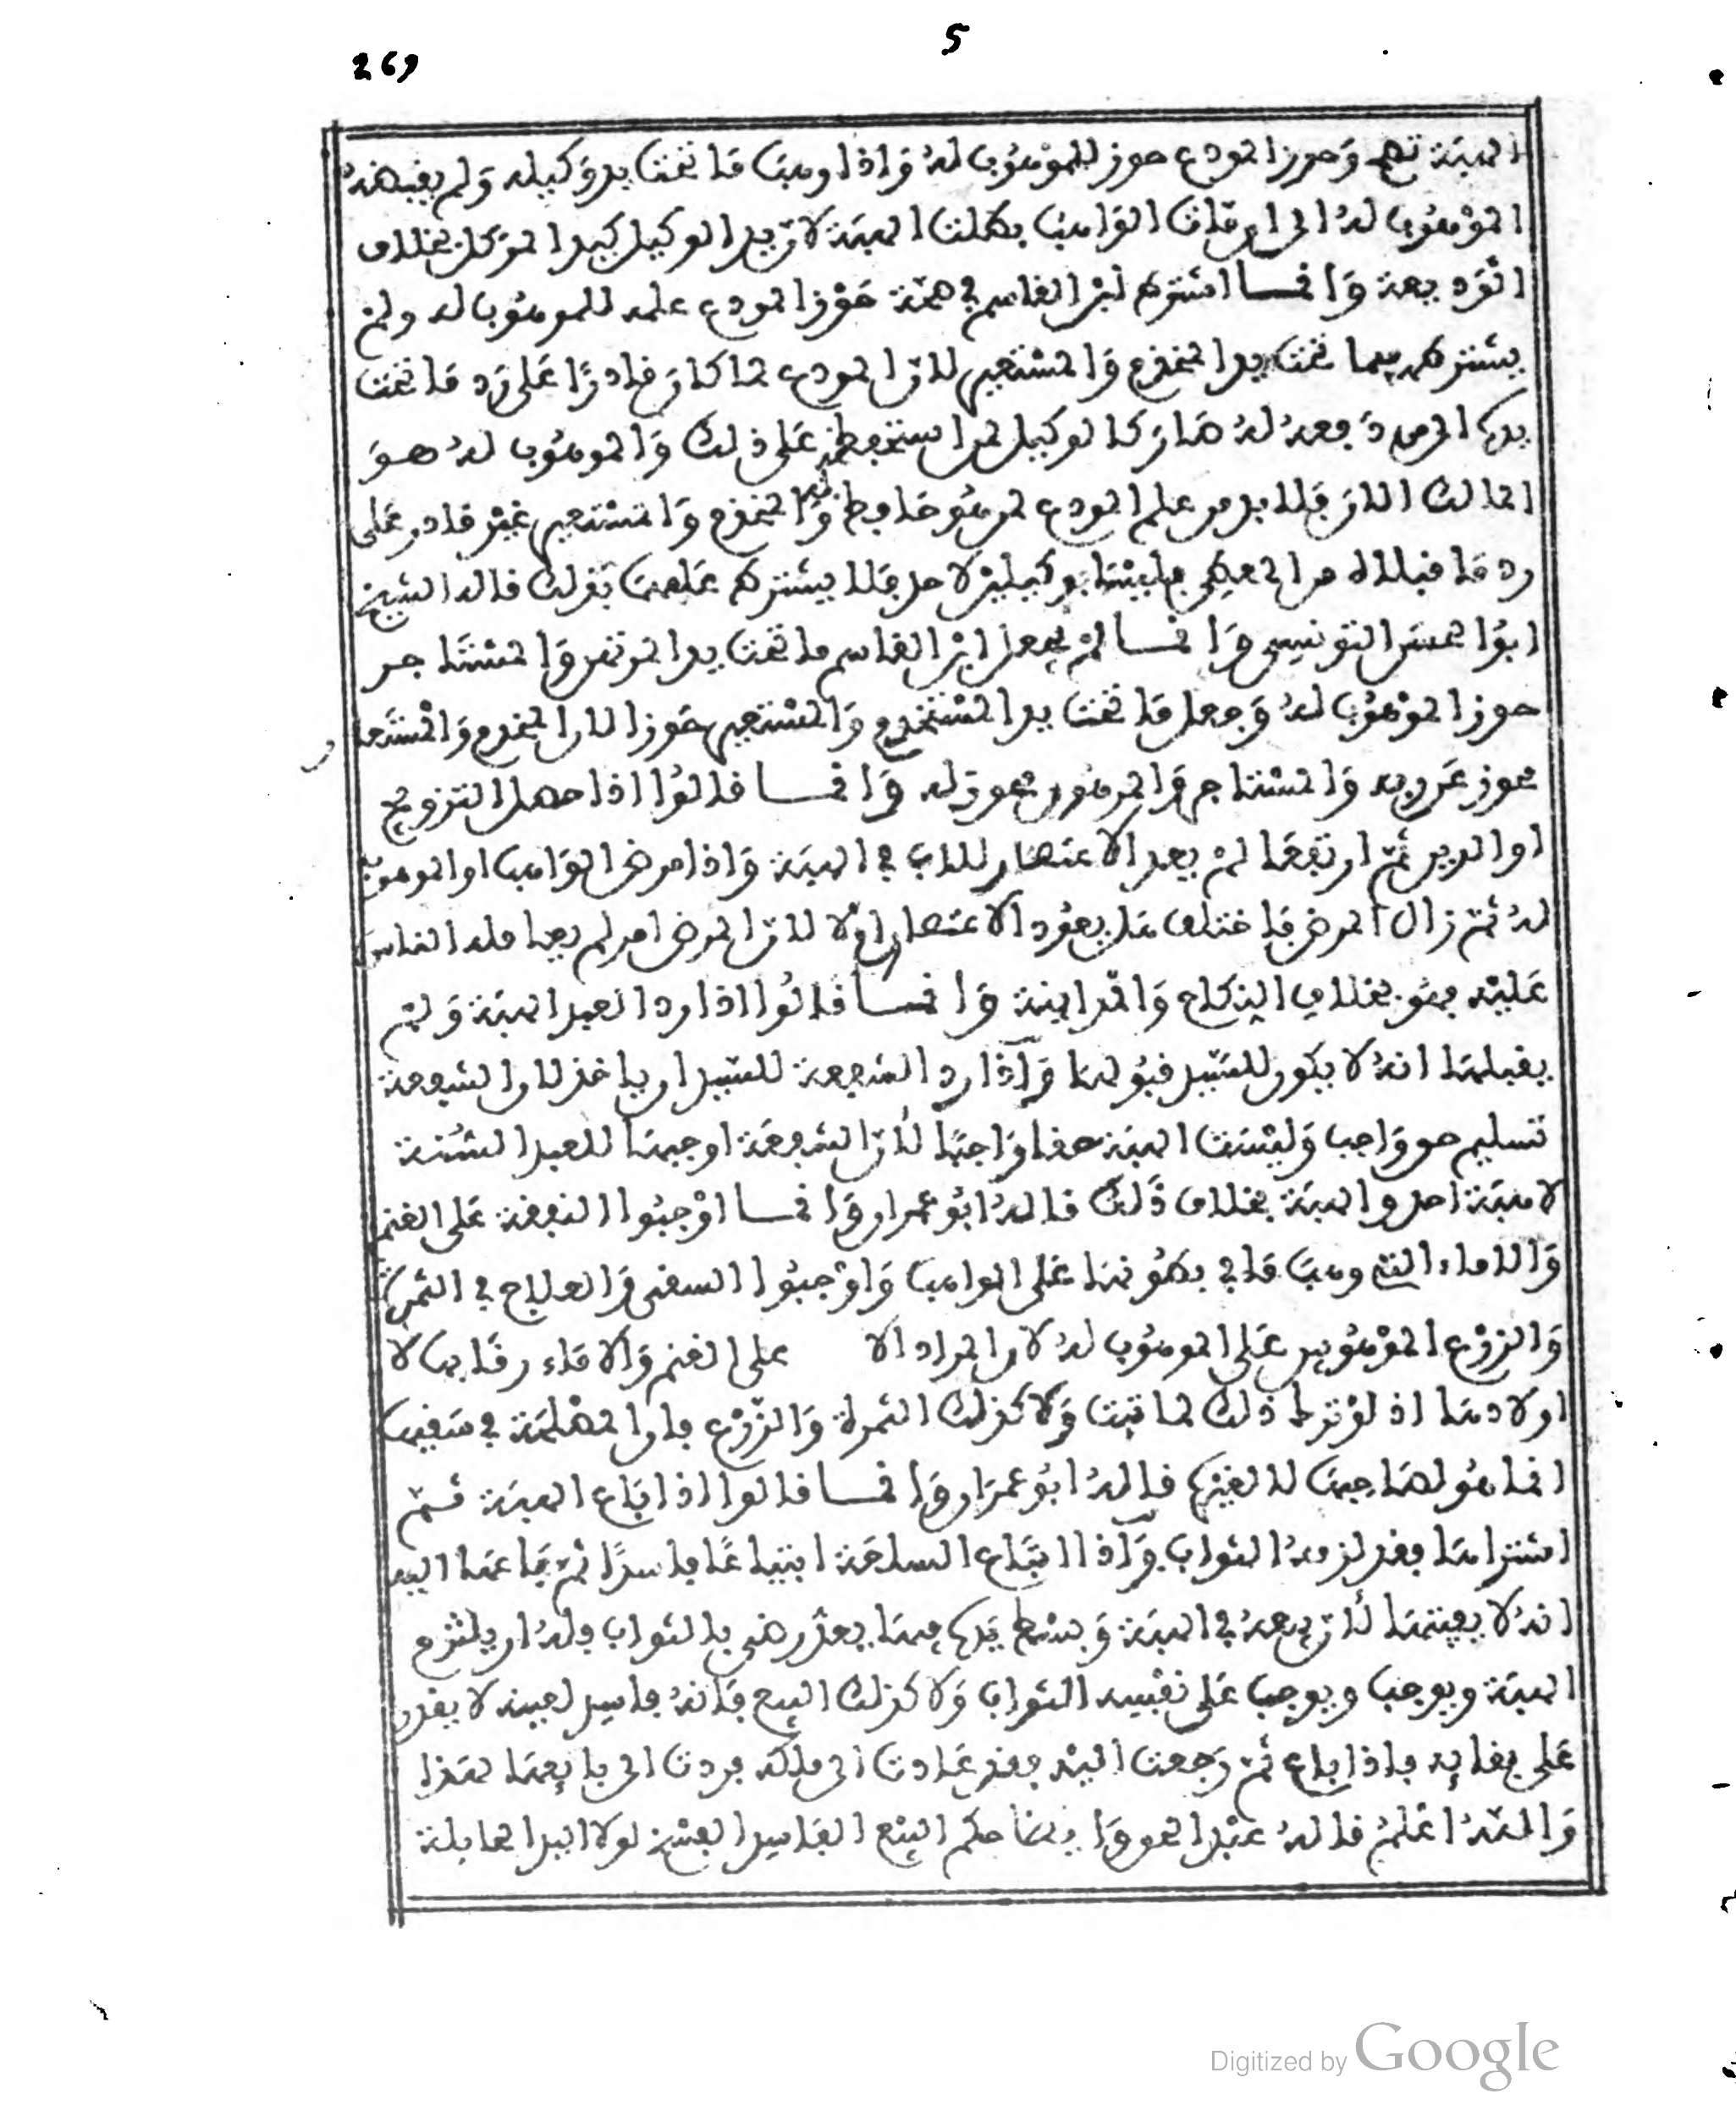 5
269
الهبة تصح وحوز المودع حوز للموهوب له وإذا وهب ما تحت يد وكيله ولم يقبضه
الموهوب له إلى أن مات الواهب بطلت الهبة لأن يد الوكيل كيد الموكل بخلاف
الوديعة وإنما اشترط ابن القاسم في صحة حوز المودع علمه للموهوب له ولم
يشترطه فيما تحت يد المخدم والمستعير لأن المودع لما كان قادرا على رد ما تحت
يده إلى من دفعه له صار كالوكيل لمن استحفظه على ذلك والموهوب له هو
المالك الآن فلا بد من علم المودع لمن هو حافظ والمخدم والمستعير غير قادر على
رد ما قبلاه من المعطي فليسا بوكيلين لأحد فلا يشترط علمهما بذلك قاله الشيخ
أبو الحسن التونسي وإنما لم يجعل ابن القاسم ما تحت يد المرتهن والمستأجر
حوز الموهوب له وجعل ما تحت يد المستخدم والمستعير حوزا لأن المخدم والمستعير
يحوز عن ربه والمستأجر والمرتهن يحوز له وإنما قالوا إذا حصل التزويج
أو الدين ثم ارتفعا لم يعد الاعتصار للأب في الهبة وإذا مرض الواهب أو الموهوب
له ثم زال المرض فاختلف هل يعود الاعتصار أو لا لأن المرض أمر لم يعامله الناس
عليه فهو بخلاف النكاح والمداينة وإنما قالوا إذا رد العبد الهبة ولم
يقبلها أنه لا يكون للسيد قبولها وإذا رد الشفعة للسيد أن يأخذ لأن الشفعة
تسليم حق واجب وليست الهبة حقا واجبا لأن الشفعة أوجبها للعبد السنة
لا هبة أحد والهبة بخلاف ذلك قاله أبو عمران وإنما أوجبوا النفقة على الغنم
والإماء التي وهب ما في بطونها على الواهب وأوجبوا السقي والعلاج في الثمرة
والزرع الموهوبين على الموهوب له لأن المراد الا على الغنم والإماء رقابها لا
أولادها إذ لو ترك ذلك لماتت ولا كذلك الثمرة والزرع فإن المصلحة في سقيها
إنما هو لصاحبها لا لغيره قاله أبو عمران وإنما قالوا إذا باع الهبة ثم
اشتراها فقد لزمه الثواب وإذا ابتاع السلعة ابتياعا فاسدا ثم باعها اليه
أنه لا يفيتها لأن بيعه في الهبة وبسط يده فيها يعد رضى بالثواب وله أن يلتزم
الهبة ويوجب ويوجب على نفسه الثواب ولا كذلك البيع فإنه فاسد لعينه لا يقدر
على بقائه فإذا باع ثم رجعت إليه فقد عادت الى ملكه فردت الى بائعها لهذا
والله أعلم قاله عبد الحق وإنما حكم البيع الفاسد الفسخ لولا اليد الحائلة